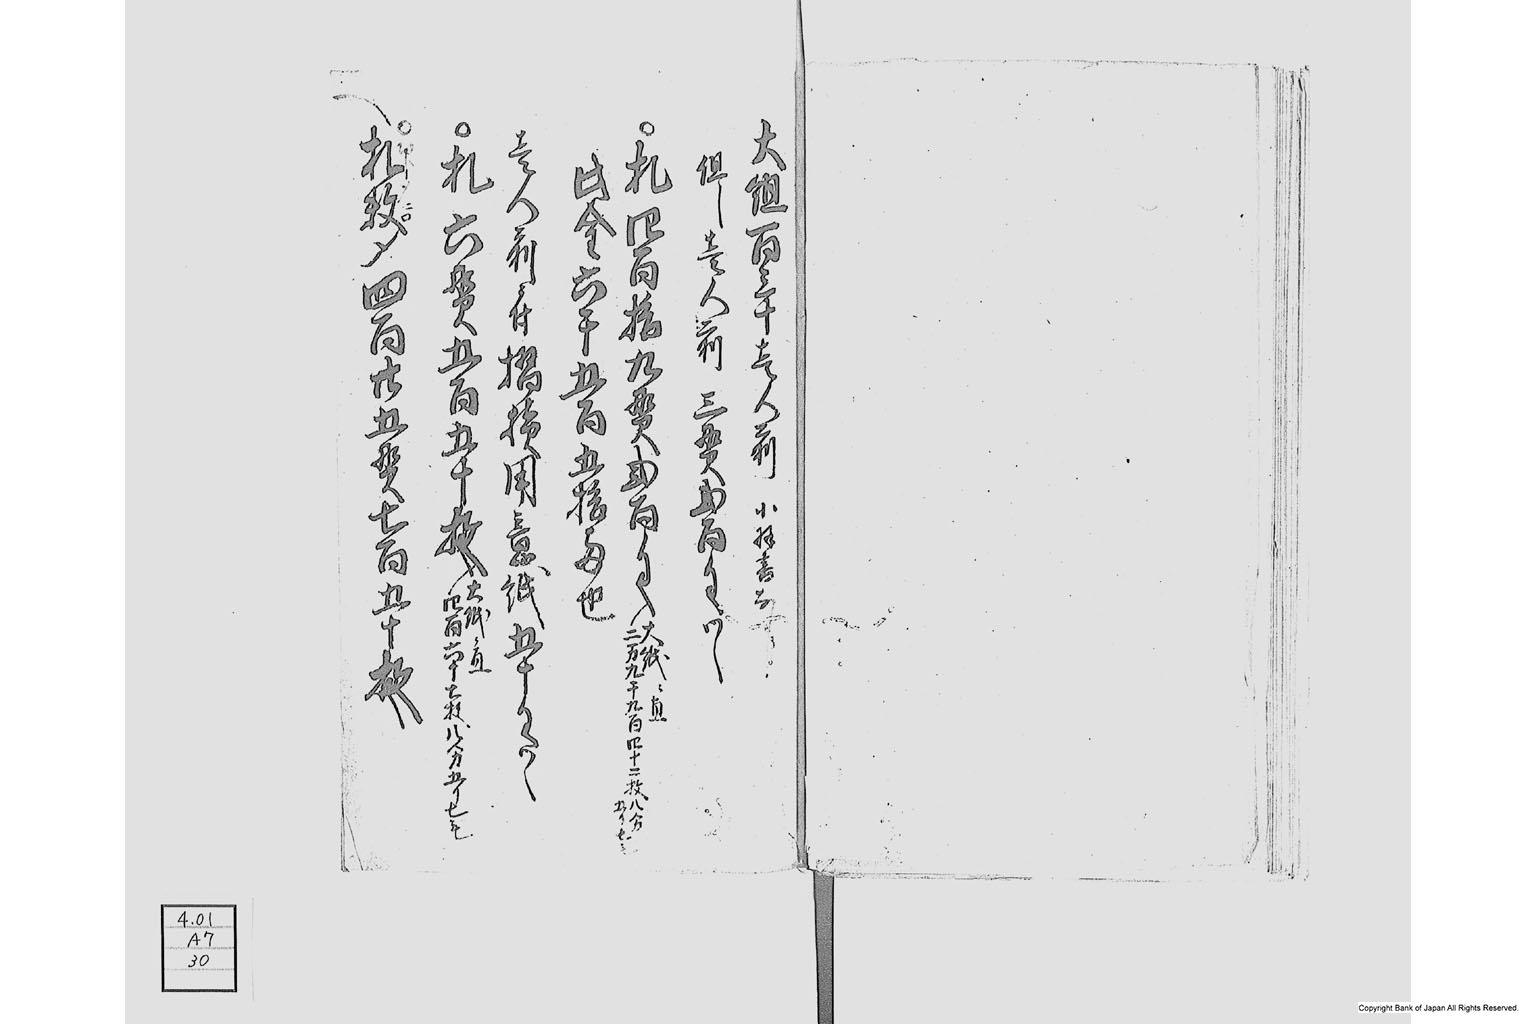 大組百三十壱人前
但し壱人前 三貫弐百枚ツヽ
○札四百拾九貫弐百枚 大紙ニ直
二万九千九百四十二枚八分
五リ七毛
此金六千五百五拾両也
壱人前ニ付摺損用意紙五十枚ツヽ
○札六貫五百五十枚 大紙ニ直
四百六十七枚八分五リ七毛
○札数〆四百廿五貫七百五十枚
4.01
A7
30
Copyright Bank of Japan All Rights Reserved.